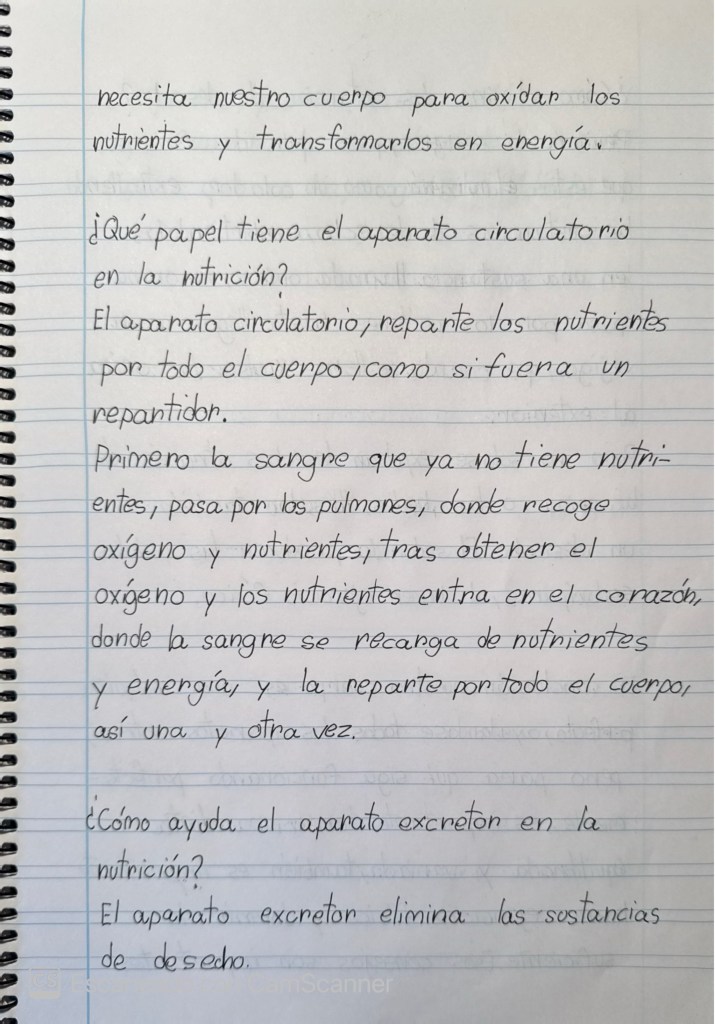 necesita nuestro cuerpo para oxídar los
nutrientes y transformarlos en energía.
¿Qué papel tiene el aparato circulatorio
en la nutrición?
El aparato circulatorio, reparte los nutrientes
por todo el cuerpo, como si fuera un
repartidor.
Primero la sangre que ya no tiene nutri-
entes, pasa por los pulmones, donde recoge
oxígeno y nutrientes, tras obtener el
oxígeno y los nutrientes entra en el corazón,
donde la sangre se recarga de nutrientes
y energía, y la reparte por todo el cuerpo,
así una y otra vez.
¿Cómo ayuda el aparato excretor en la
nutrición?
El aparato excretor elimina las sustancias
de desecho.
CamScanner